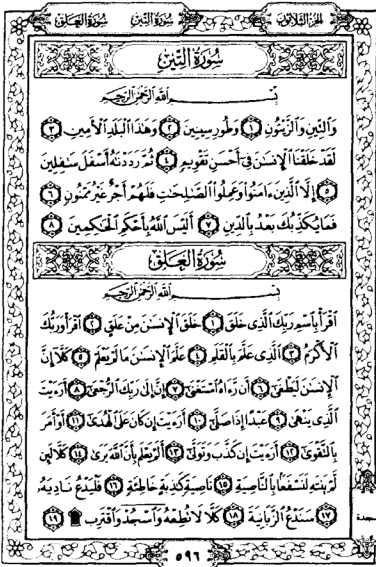 الجزء الثلاثون سورة التين سورة العلق
سُورَةُ التِّينِ
بِسْمِ اللَّهِ الرَّحْمَٰنِ الرَّحِيمِ
وَالتِّينِ وَالزَّيْتُونِ ١ وَطُورِ سِينِينَ ٢ وَهَٰذَا الْبَلَدِ الْأَمِينِ ٣
لَقَدْ خَلَقْنَا الْإِنسَٰنَ فِي أَحْسَنِ تَقْوِيمٍ ٤ ثُمَّ رَدَدْنَٰهُ أَسْفَلَ سَٰفِلِينَ
٥ إِلَّا الَّذِينَ ءَامَنُوا وَعَمِلُوا الصَّٰلِحَٰتِ فَلَهُمْ أَجْرٌ غَيْرُ مَمْنُونٍ ٦
فَمَا يُكَذِّبُكَ بَعْدُ بِالدِّينِ ٧ أَلَيْسَ اللَّهُ بِأَحْكَمِ الْحَٰكِمِينَ ٨
سُورَةُ الْعَلَقِ
بِسْمِ اللَّهِ الرَّحْمَٰنِ الرَّحِيمِ
اقْرَأْ بِاسْمِ رَبِّكَ الَّذِي خَلَقَ ١ خَلَقَ الْإِنسَٰنَ مِنْ عَلَقٍ ٢ اقْرَأْ وَرَبُّكَ
الْأَكْرَمُ ٣ الَّذِي عَلَّمَ بِالْقَلَمِ ٤ عَلَّمَ الْإِنسَٰنَ مَا لَمْ يَعْلَمْ ٥ كَلَّا إِنَّ
الْإِنسَٰنَ لَيَطْغَىٰ ٦ أَن رَّءَاهُ اسْتَغْنَىٰ ٧ إِنَّ إِلَىٰ رَبِّكَ الرُّجْعَىٰ ٨ أَرَءَيْتَ
الَّذِي يَنْهَىٰ ٩ عَبْدًا إِذَا صَلَّىٰ ١٠ أَرَءَيْتَ إِن كَانَ عَلَى الْهُدَىٰ ١١ أَوْ أَمَرَ
بِالتَّقْوَىٰ ١٢ أَرَءَيْتَ إِن كَذَّبَ وَتَوَلَّىٰ ١٣ أَلَمْ يَعْلَم بِأَنَّ اللَّهَ يَرَىٰ ١٤ كَلَّا لَئِن
لَّمْ يَنتَهِ لَنَسْفَعًا بِالنَّاصِيَةِ ١٥ نَاصِيَةٍ كَٰذِبَةٍ خَاطِئَةٍ ١٦ فَلْيَدْعُ نَادِيَهُ
١٧ سَنَدْعُ الزَّبَانِيَةَ ١٨ كَلَّا لَا تُطِعْهُ وَاسْجُدْ وَاقْتَرِب ۩ ١٩
سجدة
٥٩٦